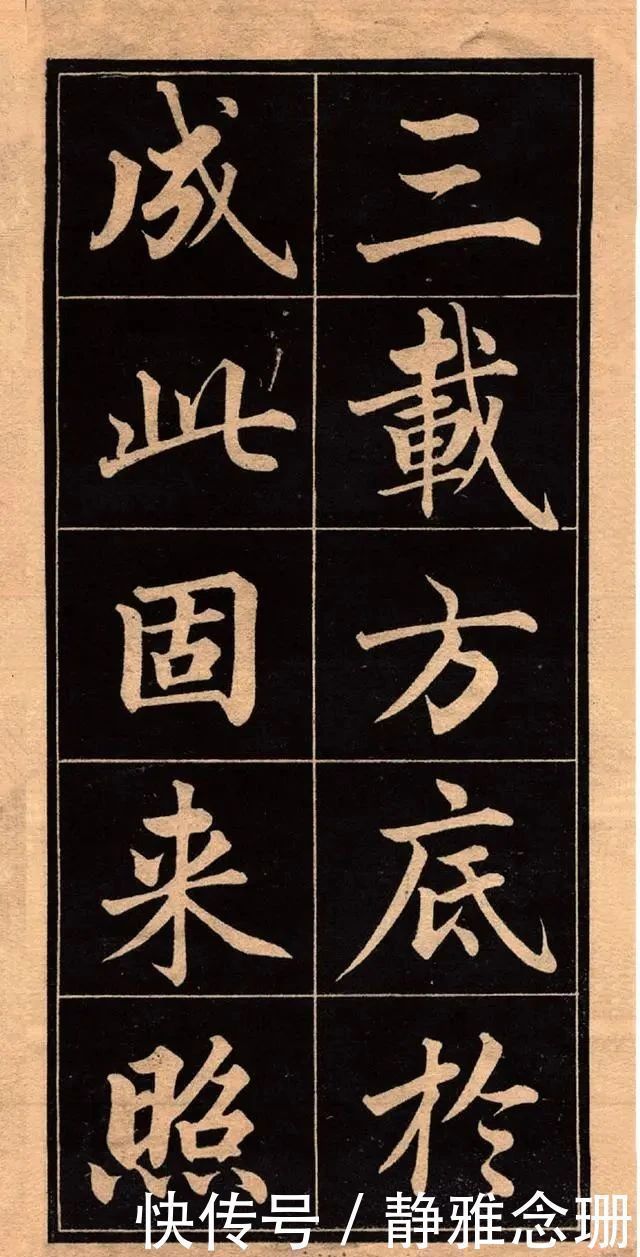 三載方底於
成此固来照
快传号/静雅念珊